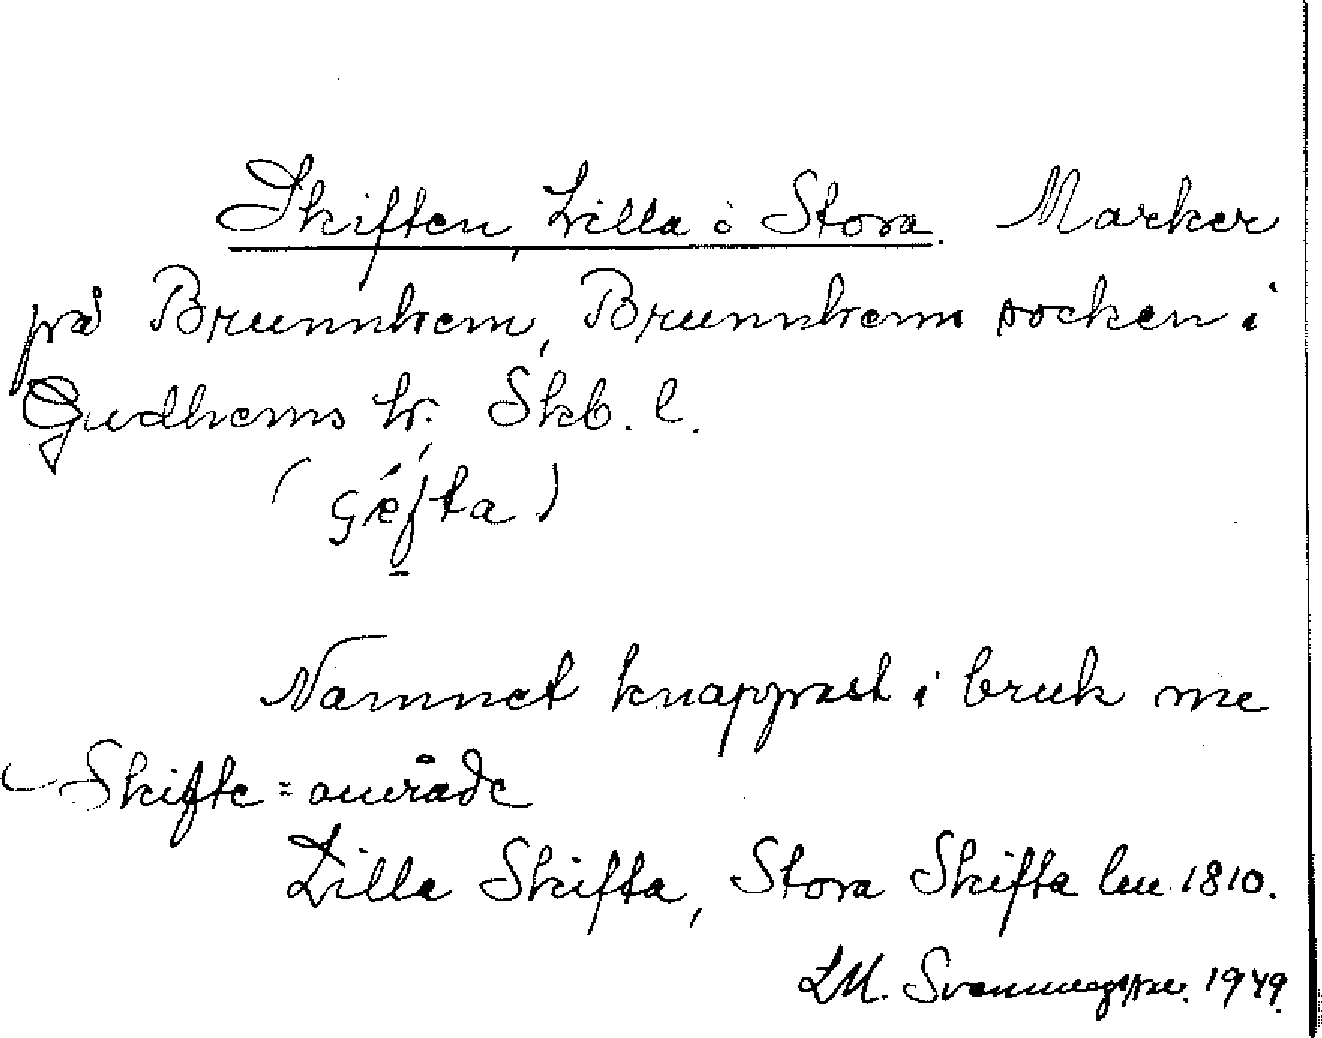 Skiften, Lilla o Stora. Marker
på Brunnhem, Brunnhems socken i
Gudhems hr. Skb. l.
( )
Namnet knappast i bruk me
Skifte = område
Lilla Skifta, Stora Skifta lm 1810.
LM. Svenungsson. 1949.